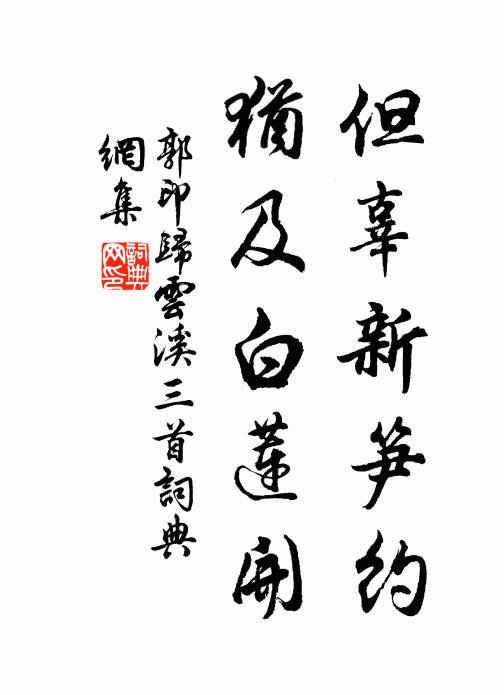 但辜新笋約
猶及白蓮開
郭印歸雲溪三首詞典
網集
詞典
网印